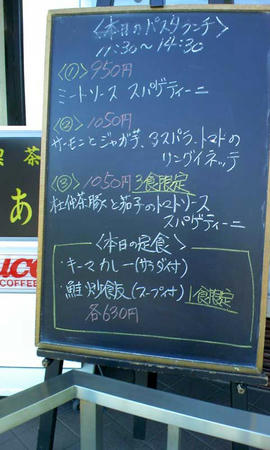 <本日のパスタランチ>
11:30～14:30
<①> 950円
ミートソース スパゲティーニ
<②> 1050円
サーモンとジャガ芋、アスパラ、トマトの
リングイネッテ
<③> 1050円 3食限定
杜仲茶豚と茄子のトマトソース
スパゲティーニ
<本日の定食>
・キーマカレー(サラダ付)
・鮭炒飯(スープ付) 1食限定
各630円
喫茶
あ
UCC
COFFEE